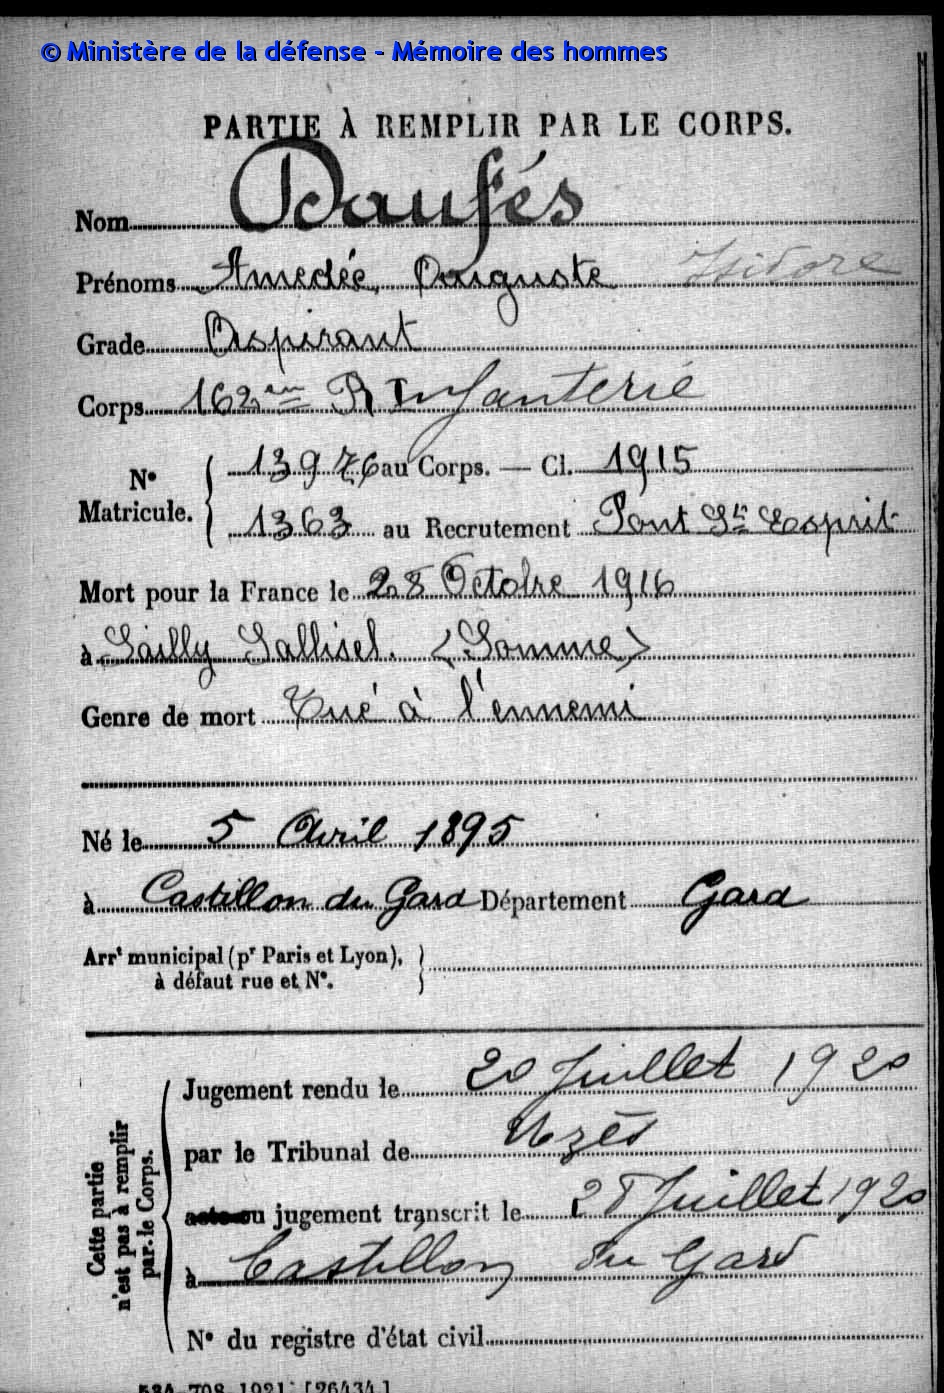 © Ministère de la défense - Mémoire des hommes
PARTIE À REMPLIR PAR LE CORPS.
Nom Daufés
Prénoms Amedée, Auguste Isidore
Grade Aspirant
Corps 162em R Infanterie
N° Matricule. 13976 au Corps. — Cl. 1915
1363 au Recrutement Pont St Esprit
Mort pour la France le 28 Octobre 1916
à Sailly Sallisel. (Somme)
Genre de mort Tué à l'ennemi
Né le 5 Avril 1895
à Castillon du Gard Département Gard
Arrt municipal (pr Paris et Lyon),
à défaut rue et N°.
Cette partie
n'est pas à remplir
par le Corps.
Jugement rendu le 20 Juillet 1920
par le Tribunal de Uzès
acte ou jugement transcrit le 28 Juillet 1920
à Castillon du Gard
N° du registre d'état civil
534-708-1921. [26434.]